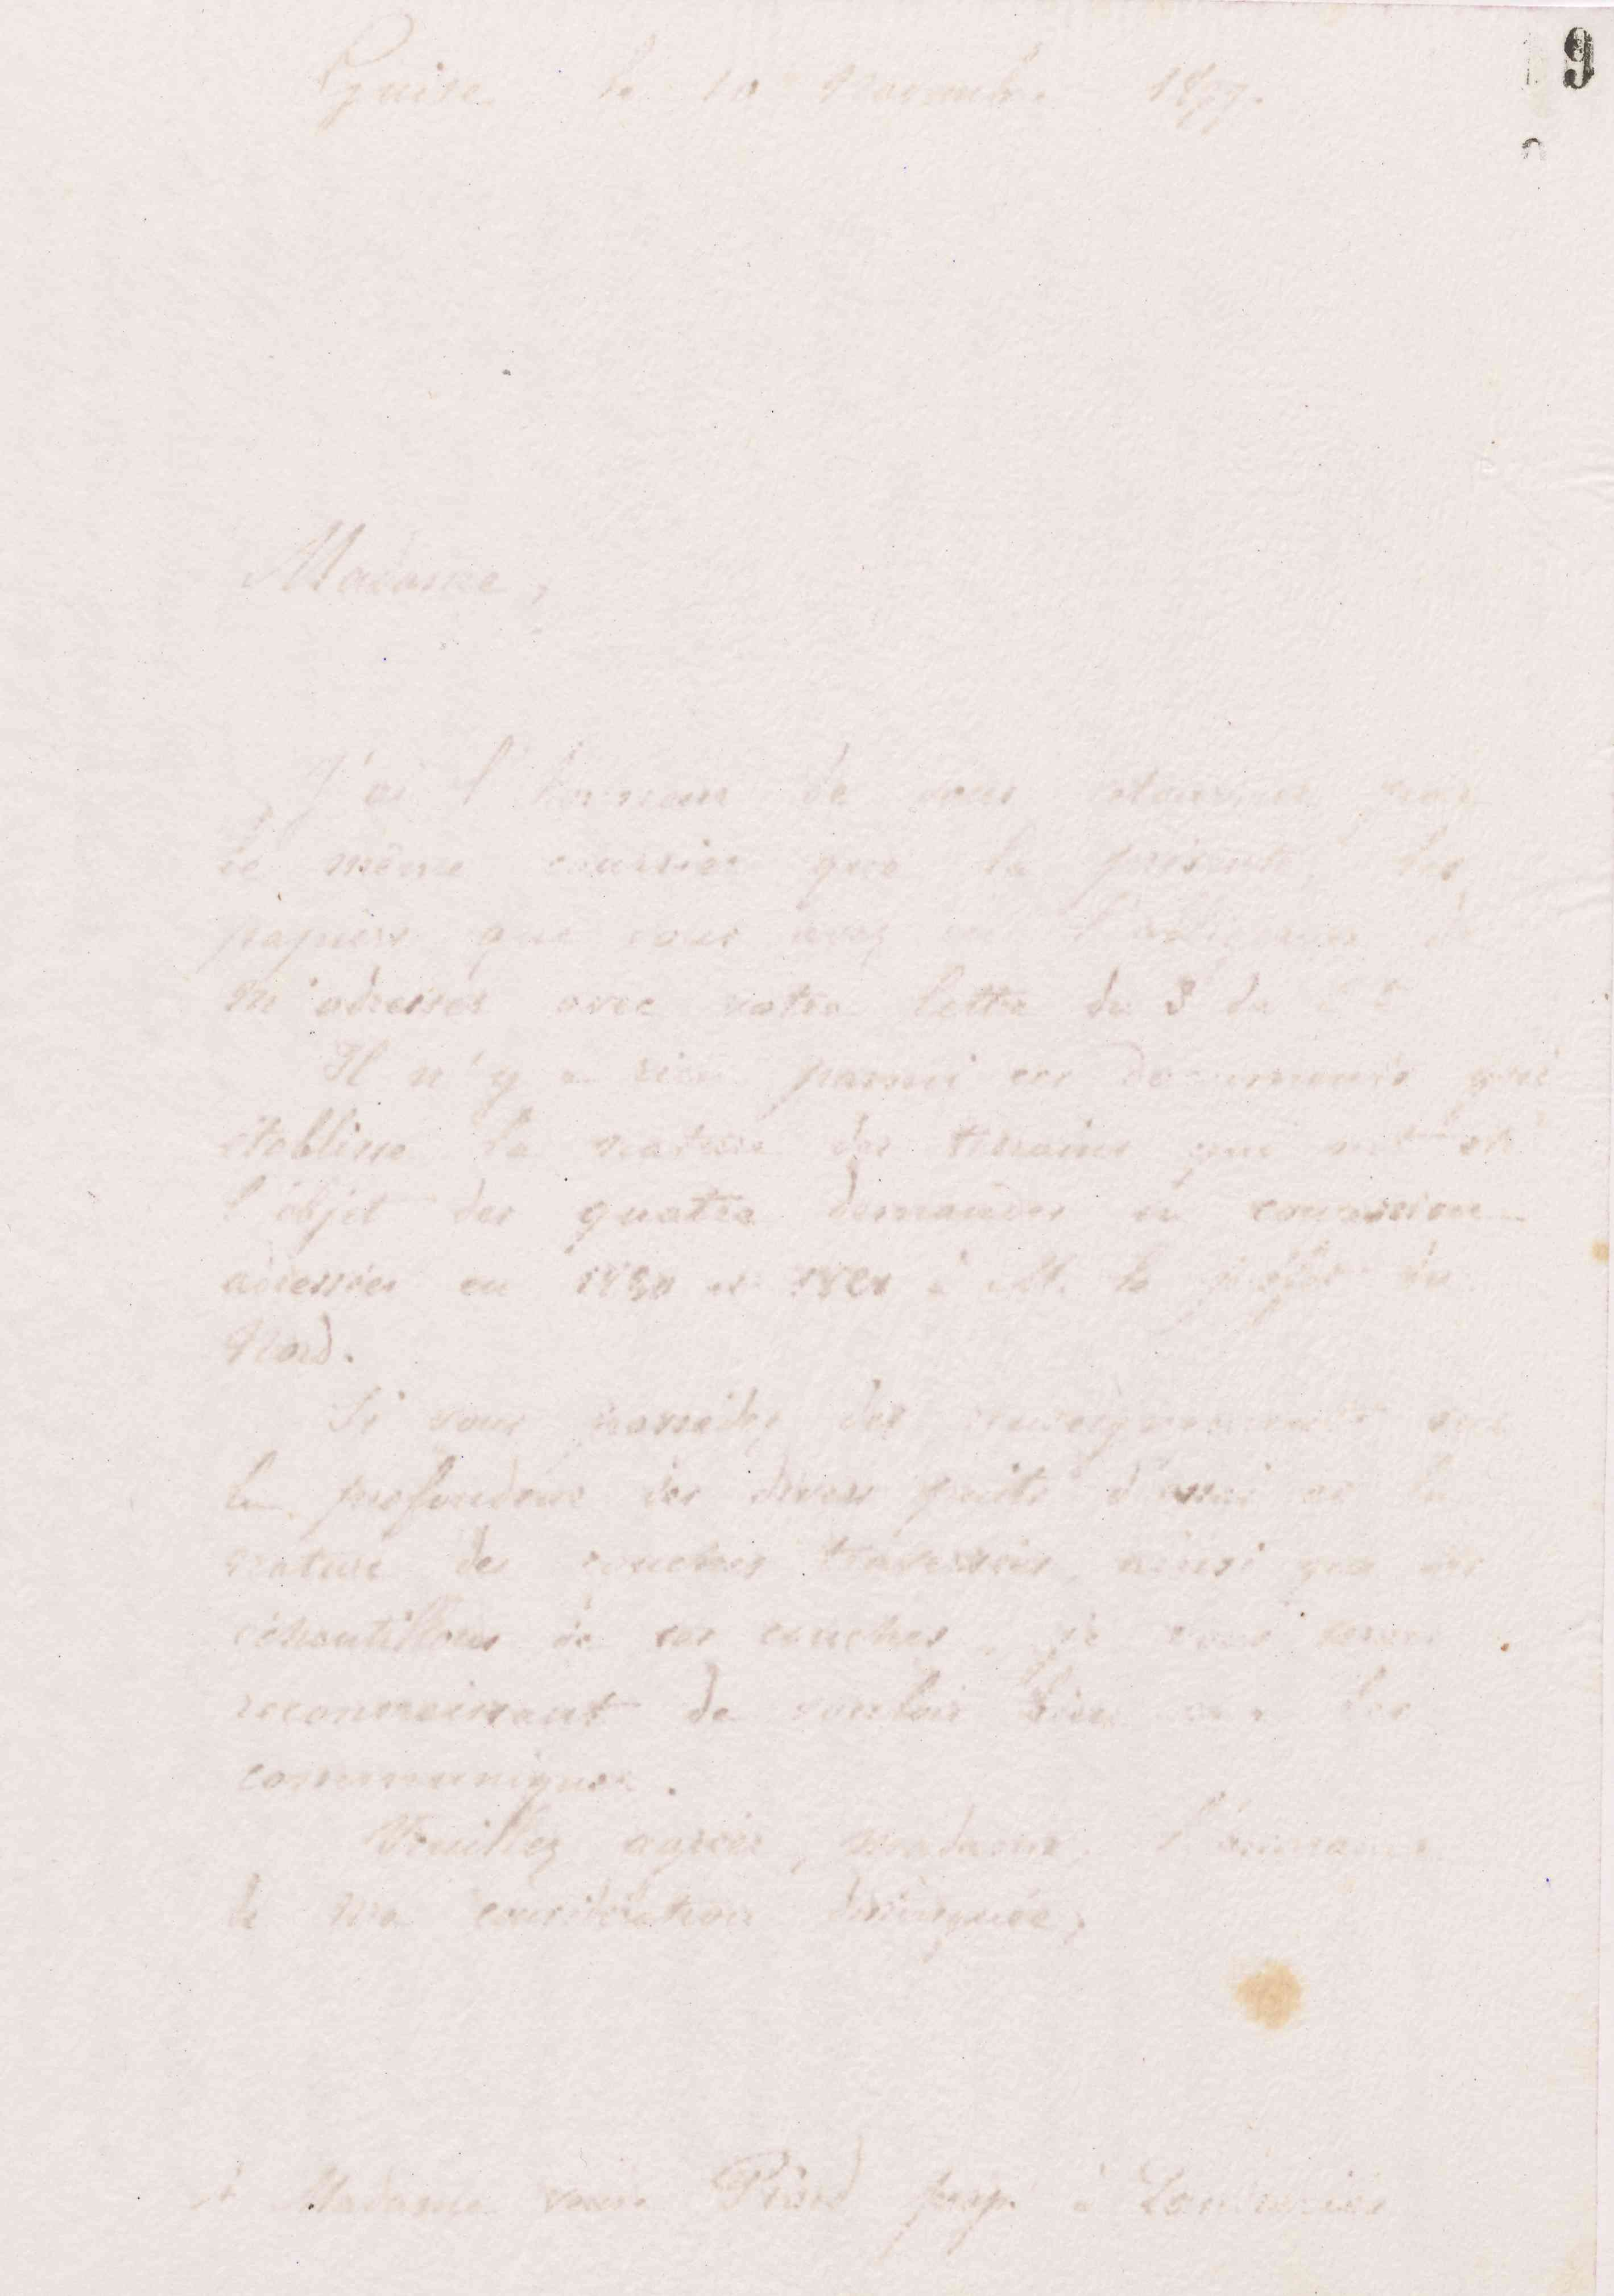 9
Guise le 10 Novembre 1877.
Madame,
J'ai l'honneur de vous retourner par
le même courrier que la présente, les
papiers que vous avez eu l'obligeance de
m'adresser avec votre lettre du 3 de
Il n'y a rien parmi ces documents qui
établisse la nature des terrains qui ont été
l'objet des quatre demandes en concession
adressées en à M. le préfet du
Nord.
Si vous possédez des renseignements sur
la profondeur des divers puits d'essai et la
nature des couches traversées, ainsi que des
échantillons de ces couches, je vous serai
reconnaissant de vouloir bien me les
communiquer.
Veuillez agréer, madame, l'assurance
de ma considération distinguée,
A Madame veuve prop. à